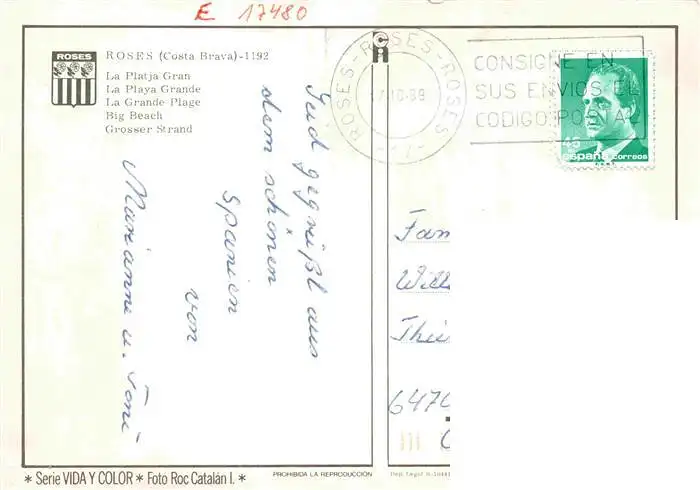 E 17480
ROSES
ROSES (Costa Brava)-1192
La Platja Gran
La Playa Grande
La Grande Plage
Big Beach
Grosser Strand
ROSES-ROSES-ROSES
CONSIGNE EN
SUS ENVIOS EL
CODIGO POSTAL
45
españa correos
Seid gegrüßt aus
dem schönen
Spanien
von
Marianne u. Toni
Fam
Will
Thü
6470
* Serie VIDA Y COLOR * Foto Roc Catalán I. *
PROHIBIDA LA REPRODUCCIÓN